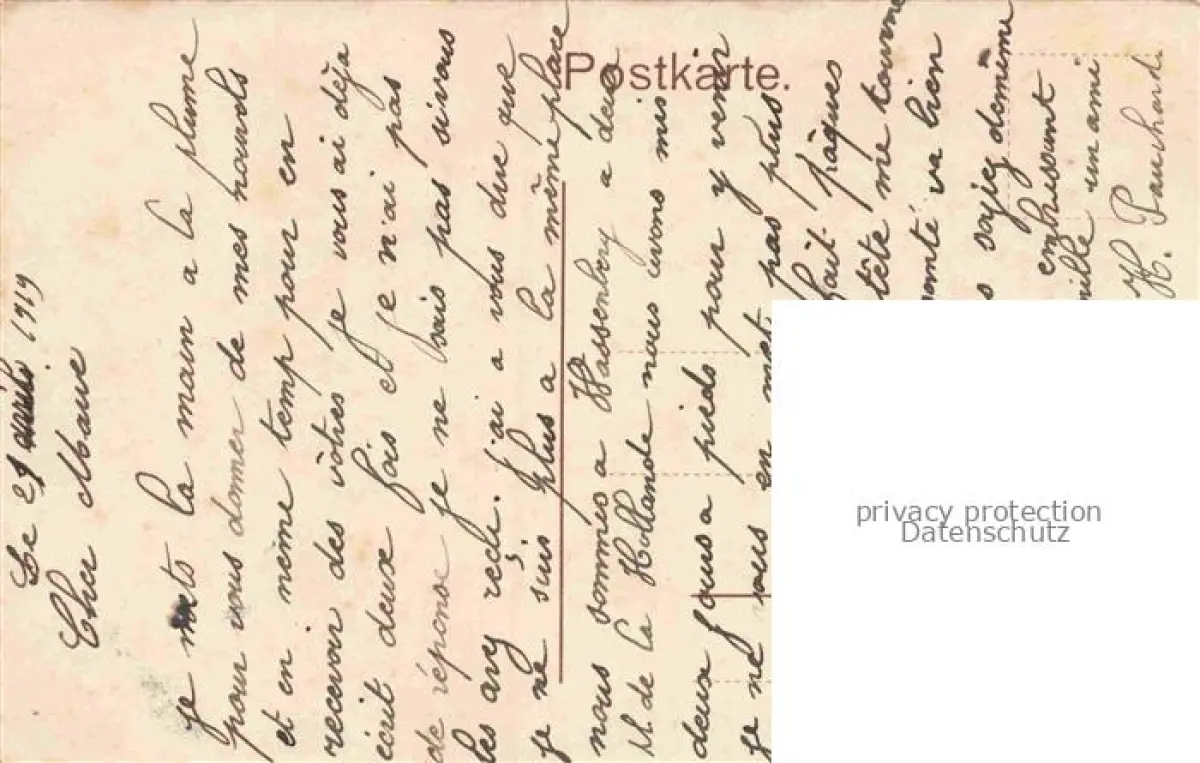 Le 21 avril 1919
Cher Marie
je mets la main a la plume
pour vous donner de mes nouvels
et en mème temp pour en
recevoir des vôtres je vous ai dèja
ècrit deux fois et je n'ai pas
de réponse je ne sais pas si vous
les avez reçle. j'ai a vous dire que
je ne suis plus a la même place
nous sommes a Wassenberg a deux
M. de la Hollande nous avons mis
deux jours a pieds pour y venir
je ne vous en met pas plus
fait pâques
tête me tourne
santé va bien
soyez de même
en haissant
un ami
H. Pauchard.
Postkarte.
privacy protection
Datenschutz